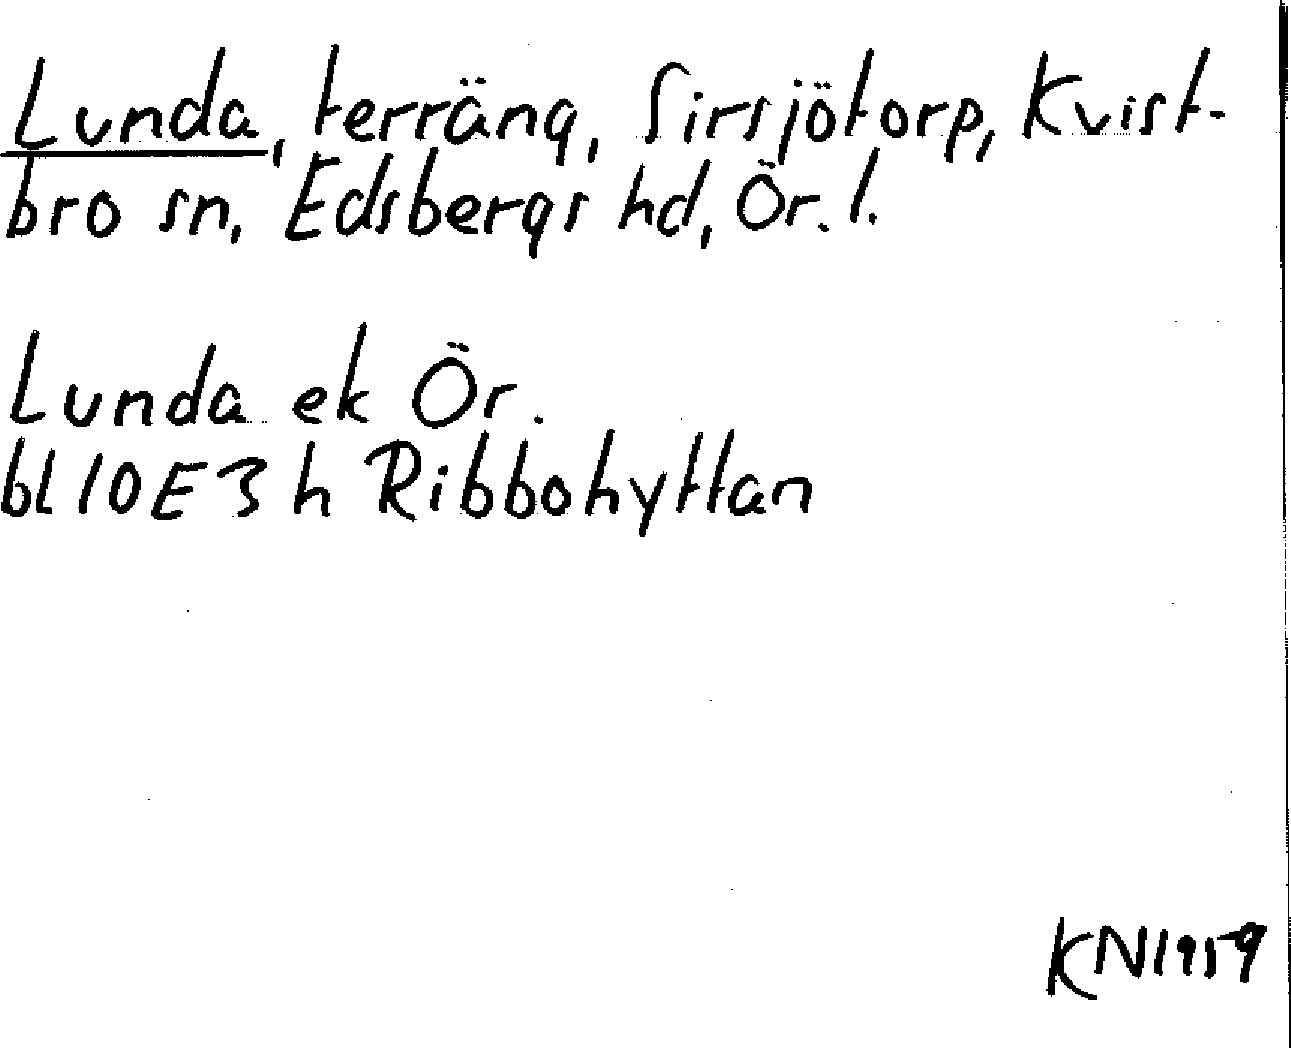 Lunda, terräng, Sirsjötorp, Kvist-
bro sn, Edsbergs hd, Ör. l.
Lunda ek Ör.
bl 10E3h Ribbohyttan
KN1959